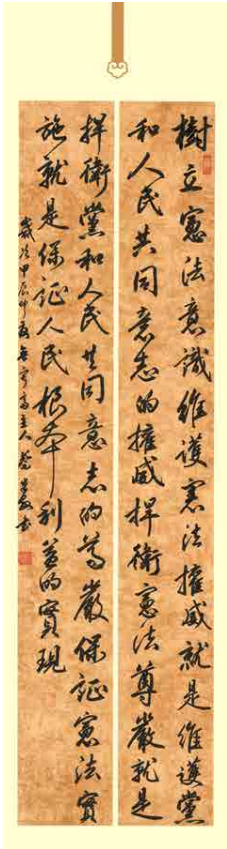 樹立憲法意識維護憲法權威就是維護黨
和人民共同意志的權威捍衛憲法尊嚴就是
捍衛黨和人民共同意志的尊嚴保証憲法實
施就是保証人民根本利益的實現
歲次甲辰仲 主人 書